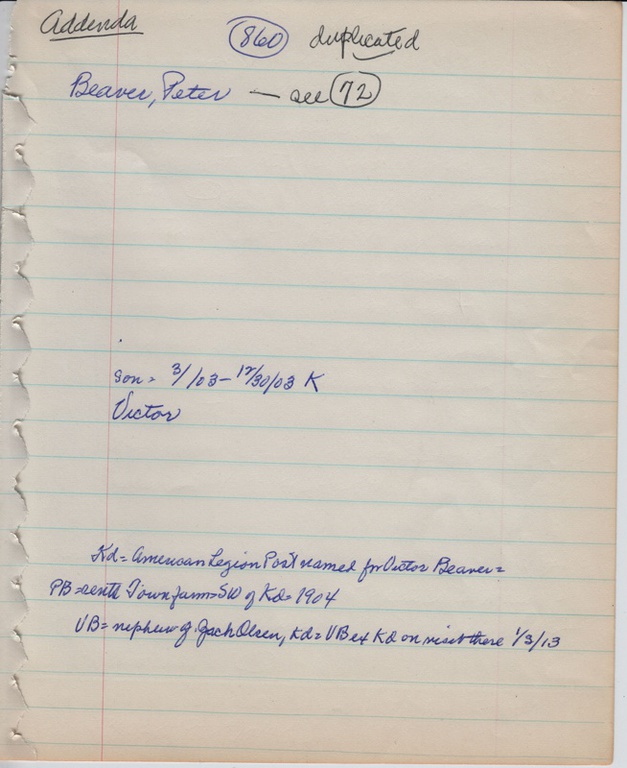 Addenda
860 duplicated
Beaver, Peter — see 72
son = 3/ /03 - 12/30/03 K
Victor
Kd = American Legion Post named for Victor Beaver =
PB = rents Town farm = SW of Kd = 1904
VB = nephew of Zach Olsen, Kd = VB ex Kd on visit there 1/3/13